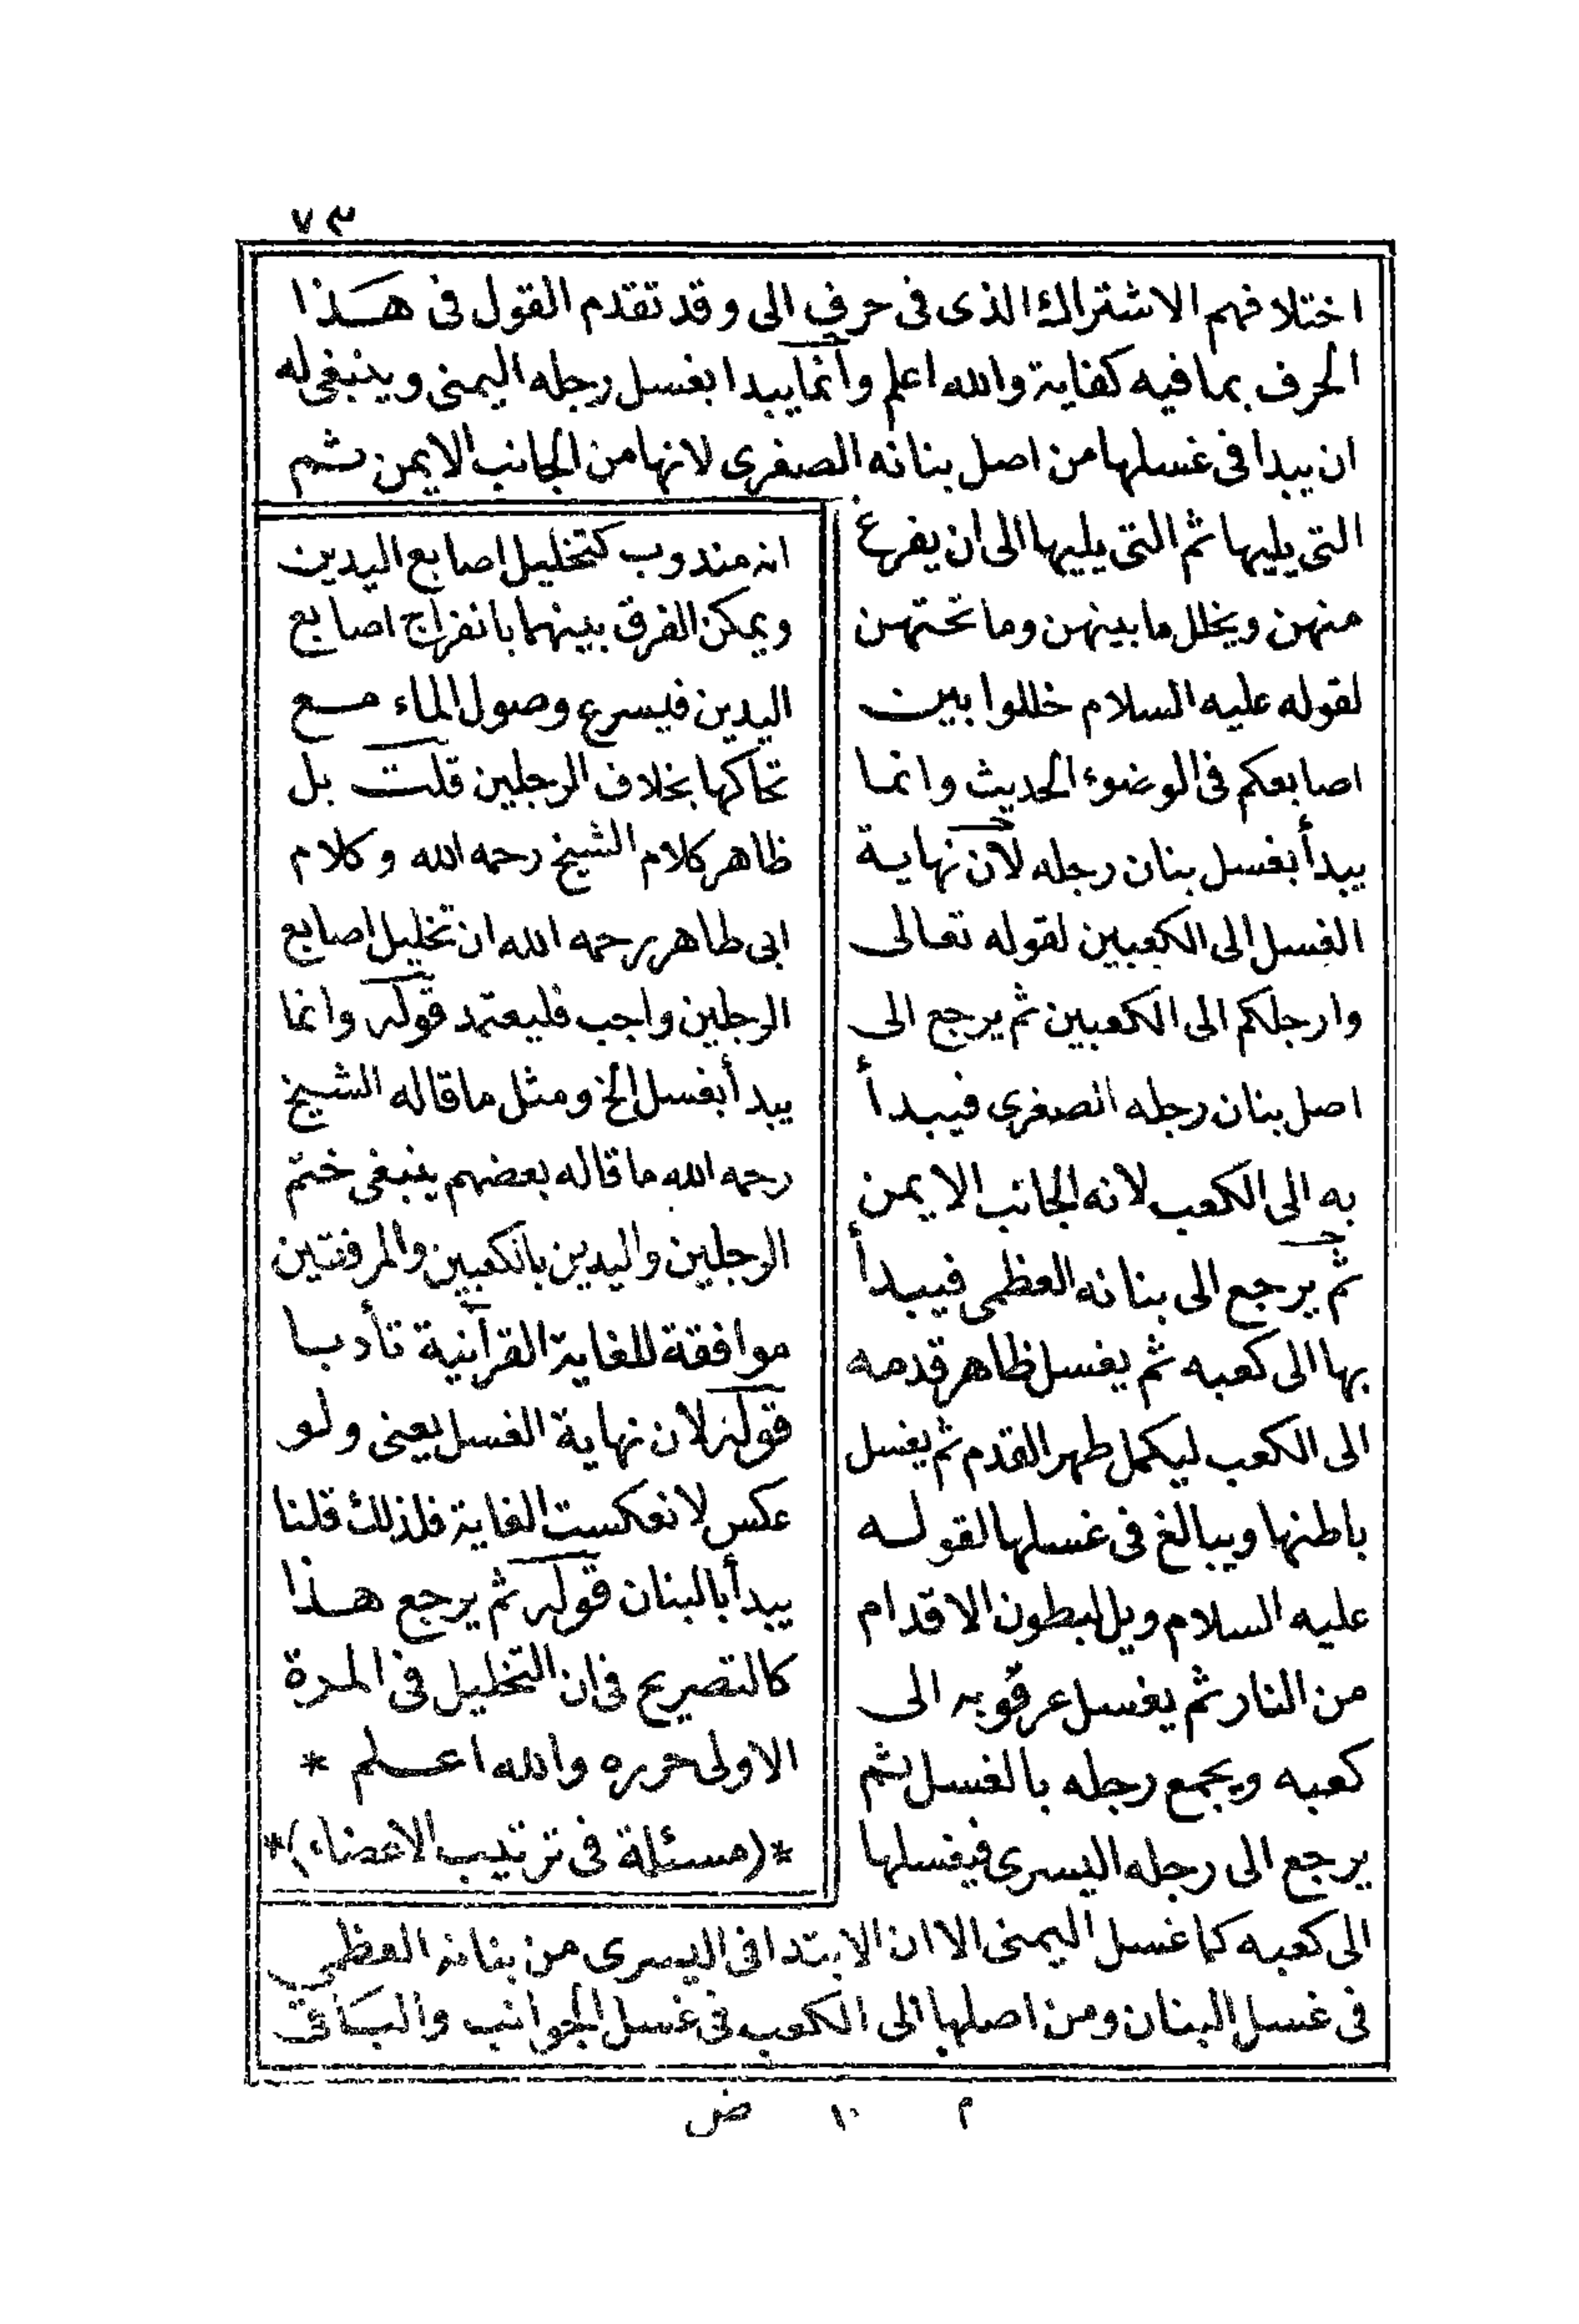 ٧٣
اختلافهم الاشتراك الذى فى حرف الى وقد تقدم القول فى هـذا
الحرف بما فيه كفاية والله اعلم وانما يبدا بغسل رجله اليمنى وينبغى له
ان يبدا فى غسلها من اصل بنانه الصغرى لانها من الجانب الايمن ثـم
التى يليها ثم التى يليها الى ان يفرغ
منهن ويخلل ما بينهن وما تحتهن
لقوله عليه السلام خللوا بين
اصابعكم فى الوضوء الحديث وانما
يبدأ بغسل بنان رجله لان نهاية
الغسل الى الكعبين لقوله تعالى
وارجلكم الى الكعبين ثم يرجع الى
اصل بنان رجله الصغرى فيبدأ
به الى الكعب لانه الجانب الايمن
ثم يرجع الى بنانه العظمى فيبدأ
بها الى كعبه ثم يغسل ظاهر قدمه
الى الكعب ليكمل طهر القدم ثم يغسل
باطنها ويبالغ فى غسلها لقولـه
عليه السلام ويل لبطون الاقدام
من النار ثم يغسل عرقوبه الى
كعبه ويجمع رجله بالغسل ثم
يرجع الى رجله اليسرى فيغسلها
انه مندوب كتخليل اصابع اليدين
ويمكن الفرق بينهما بانفراج اصابع
اليدين فيسرع وصول الماء مـع
تحاكها بخلاف الرجلين قلت بل
ظاهر كلام الشيخ رحمه الله وكلام
ابى طاهر رحمه الله ان تخليل اصابع
الرجلين واجب فليعتمد قوله وانما
يبدأ بغسل الخ ومثل ما قاله الشيخ
رحمه الله ما قاله بعضهم ينبغى ختم
الرجلين واليدين بالكعبين والمرفقين
موافقة للغاية القرآنية تأدبا
قوله لان نهاية الغسل يعنى ولو
عكس لانعكست الغاية فلذلك قلنا
يبدأ بالبنان قوله ثم يرجع هـذا
كالتصريح فى ان التخليل فى المرة
الاولى حرره والله اعـلم *
*(مسئلة فى ترتيب الاعضاء)*
الى كعبه كما غسل اليمنى الا ان الابتدا فى اليسرى من بنانه العظمى
فى غسل البنان ومن اصلها الى الكعب فى غسل الجوانب والبـاقى
م ١٠ ض